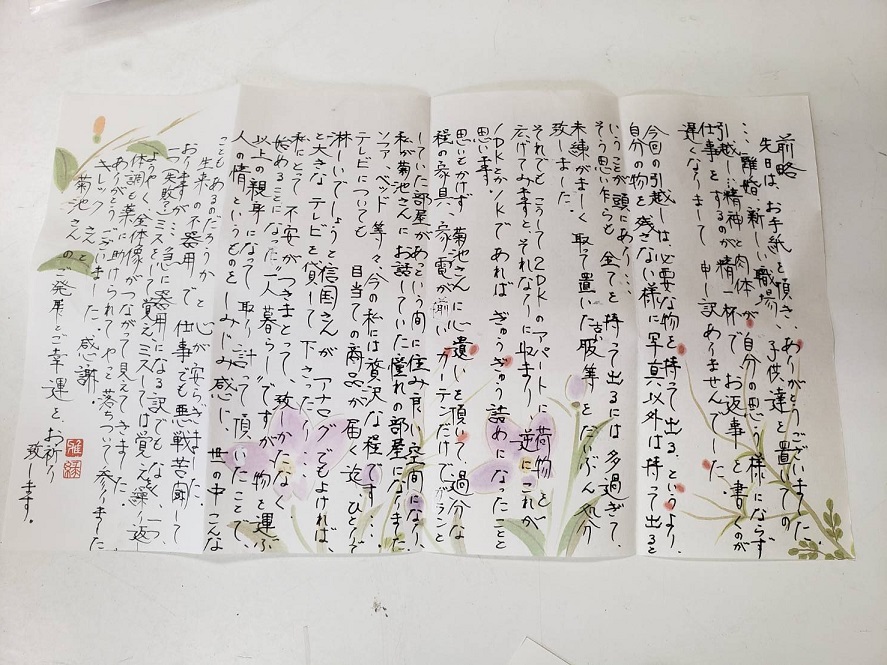 前略
先日は、お手紙を頂き、ありがとうございました。
…離婚、新しい職場、子供達を置いての
引越し…精神と肉体が自分の思う様にならず
仕事をするのが精一杯で、お返事を書くのが
遅くなりまして申し訳ありませんでした。
今回の引越しは、必要な物を持って出る、というより、
自分の物を残さない様に写真以外は持って出ると
いうことが頭にあり…
そう思い乍らも全てを持って出るには多過ぎて、
未練がましく取って置いた古い服等をだいぶん処分
致しました。
それでもこうして2DKのアパートに荷物を
広げてみますと、それなりに収まり、逆にこれが
1DKとか1Kであれば、ぎゅうぎゅう詰めになったことと
思います。
思いもかけず、菊池さんに心遣いを頂いて、過分な
程の家具、家電が揃い、カーテンだけでガランと
していた部屋があっという間に住み良い空間になり、
私が菊池さんにお話していた憧れの部屋になりました。
ソファ、ベッド等々、今の私には贅沢な程です…。
テレビについても、目当ての商品が届く迄、ひとりで
淋しいでしょうと信国さんがアナログでもよければ、
と大きなテレビを貸して下さったり…
私にとって不安がつきまとって、致しかたなく
始めることになった“一人暮らし”ですが、物を運ぶ
以上の親身になって取り計って頂いたことで、
人の情というものをしみじみ感じ、世の中こんな
こともあるのだろうかと心が安らぎました。
生来の不器用で仕事でも悪戦苦闘して
おりますが…急に器用になる訳でもなく、一つ
一つ失敗とミスをして覚え、ミスしては覚え繰り返し
ようやく、全体像がつながって見えてきました。
体調も薬に助けられて、やっと落ちついて参りました。
ありがとうございました。感謝。
キレックさんと
菊池さんのご発展とご幸運を、お祈り
致します。
雅緑